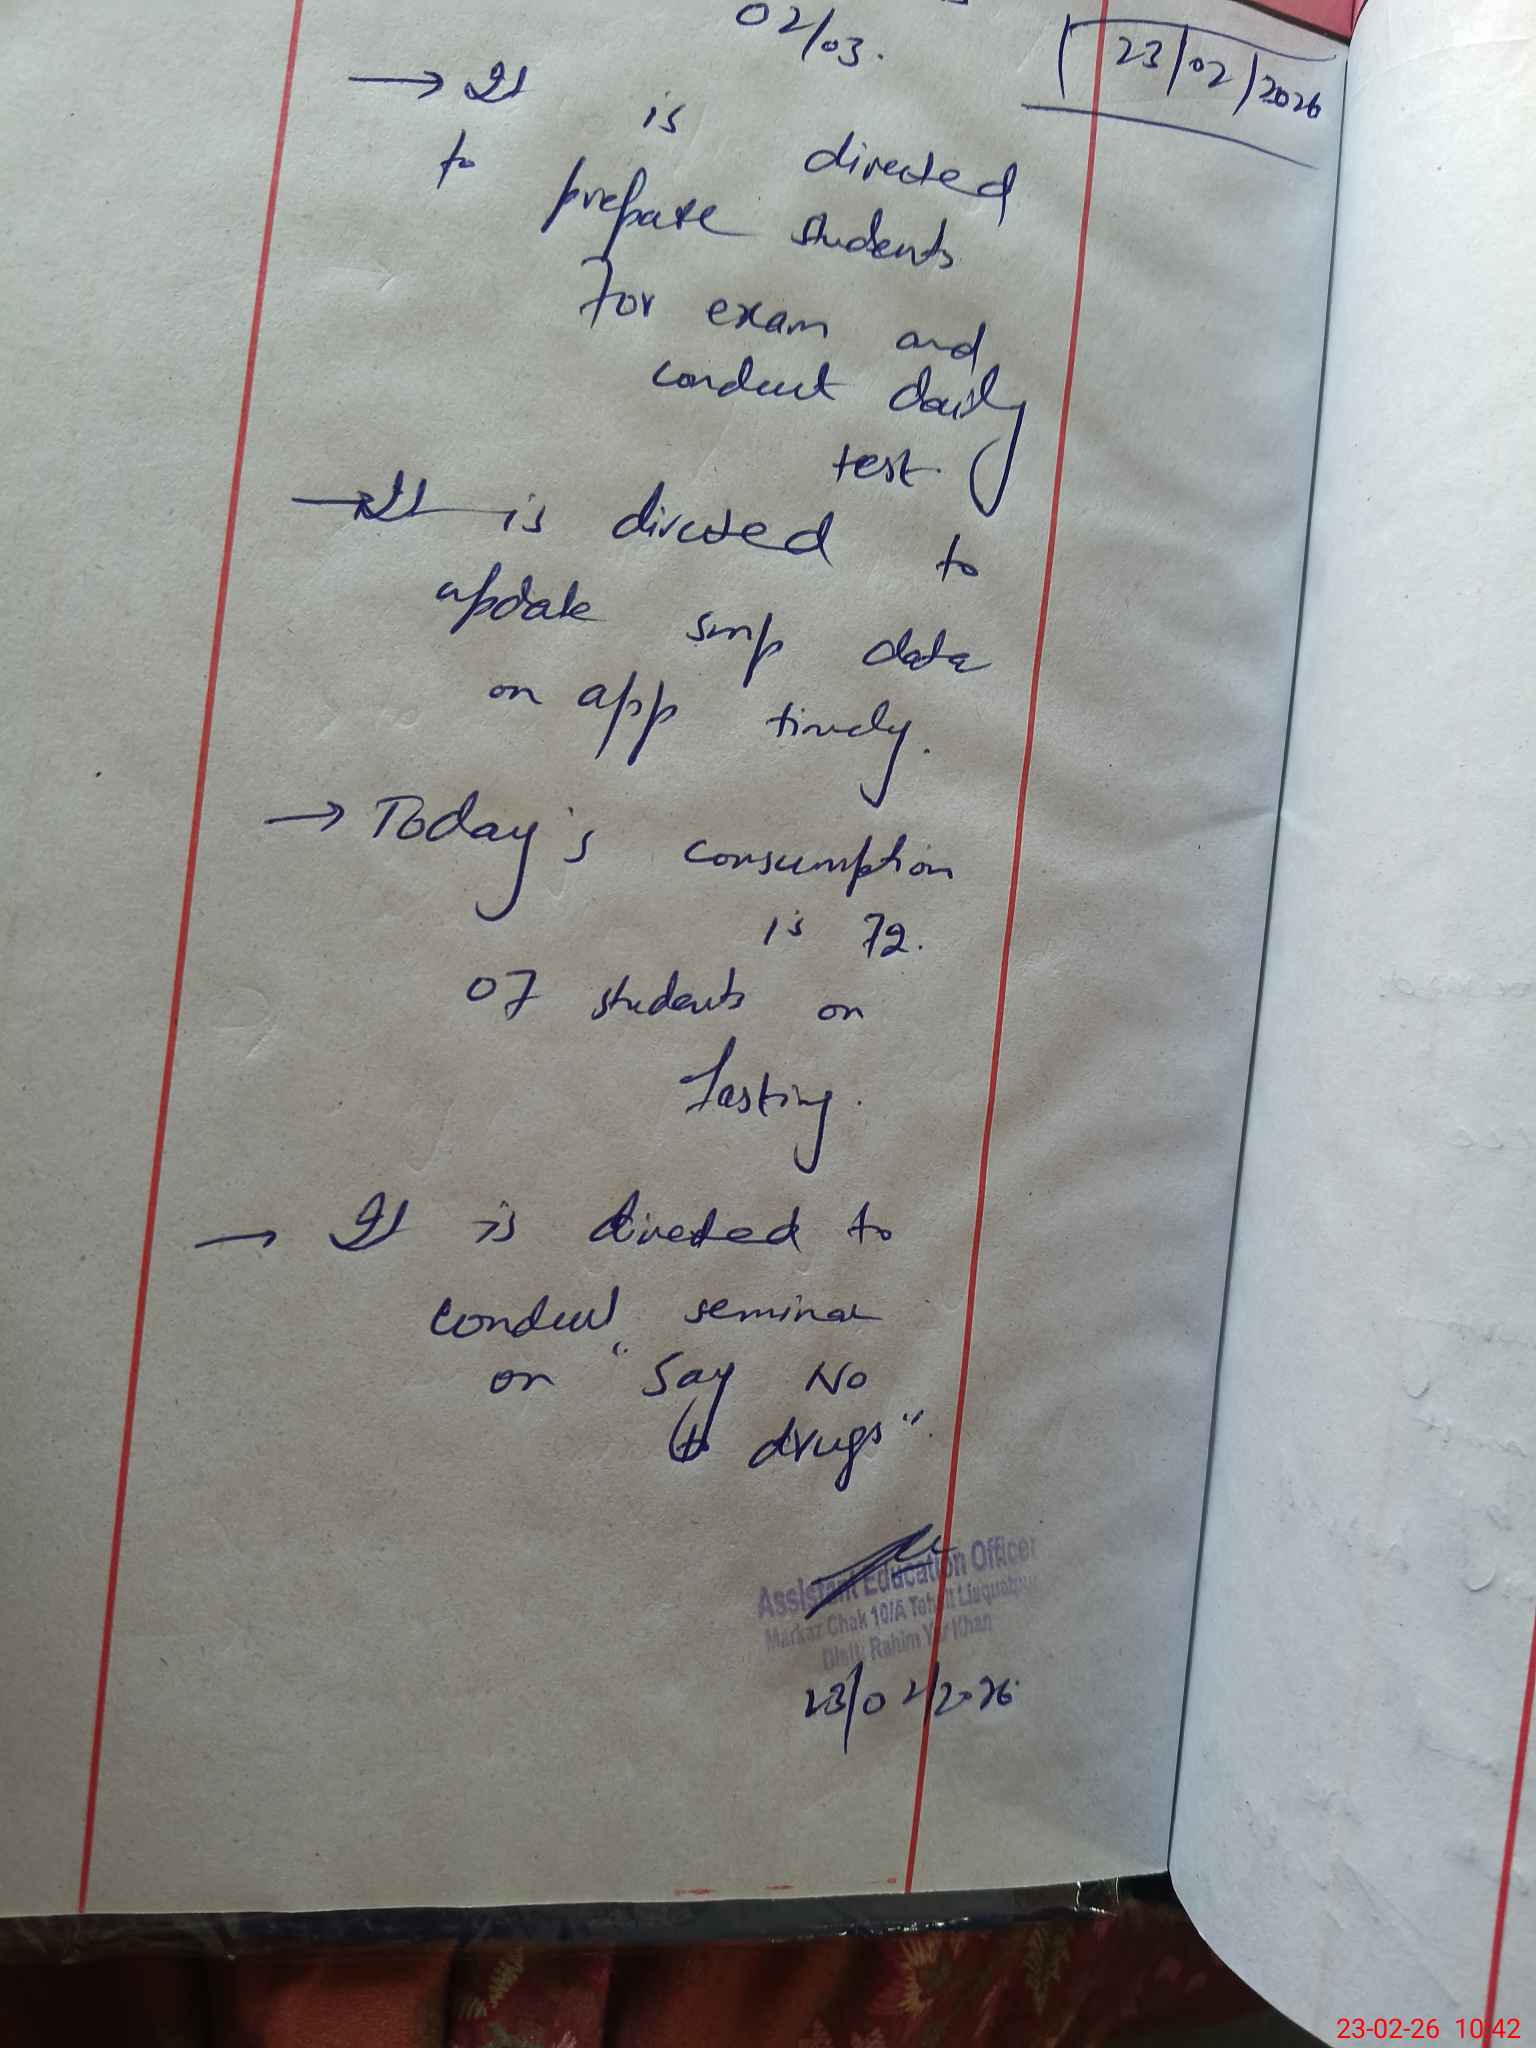 02/03.
23/02/2026
→ It is directed
to prepare students
for exam and
conduct daily
test.
→ It is directed to
update smp data
on app timely.
→ Today's consumption
is 72.
07 students on
fasting.
→ It is directed to
conduct seminar
on "Say No
to drugs".
Assistant Education Officer
Markaz Chak 10/A Tehsil Liaquatpur
Distt: Rahim Yar Khan
23/02/2026
23-02-26 10:42